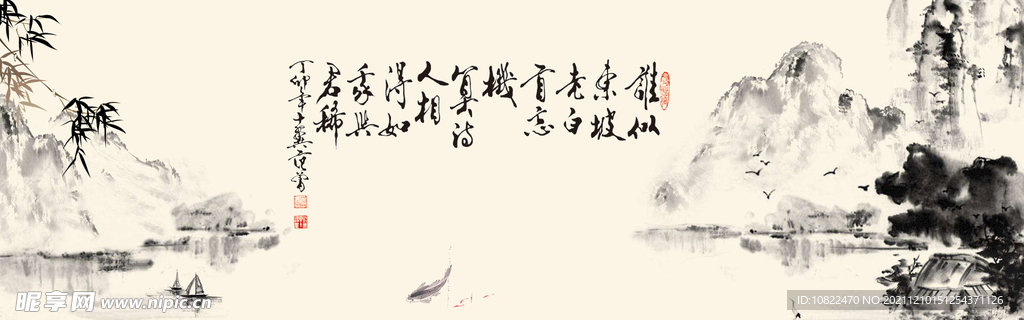 誰似
東坡
老白
首忘
機
算詩
人相
得如
我與
君稀
丁卯年十翼范曾
昵享网 www.nipic.cn
ID:10822470 NO:20211210151254371126